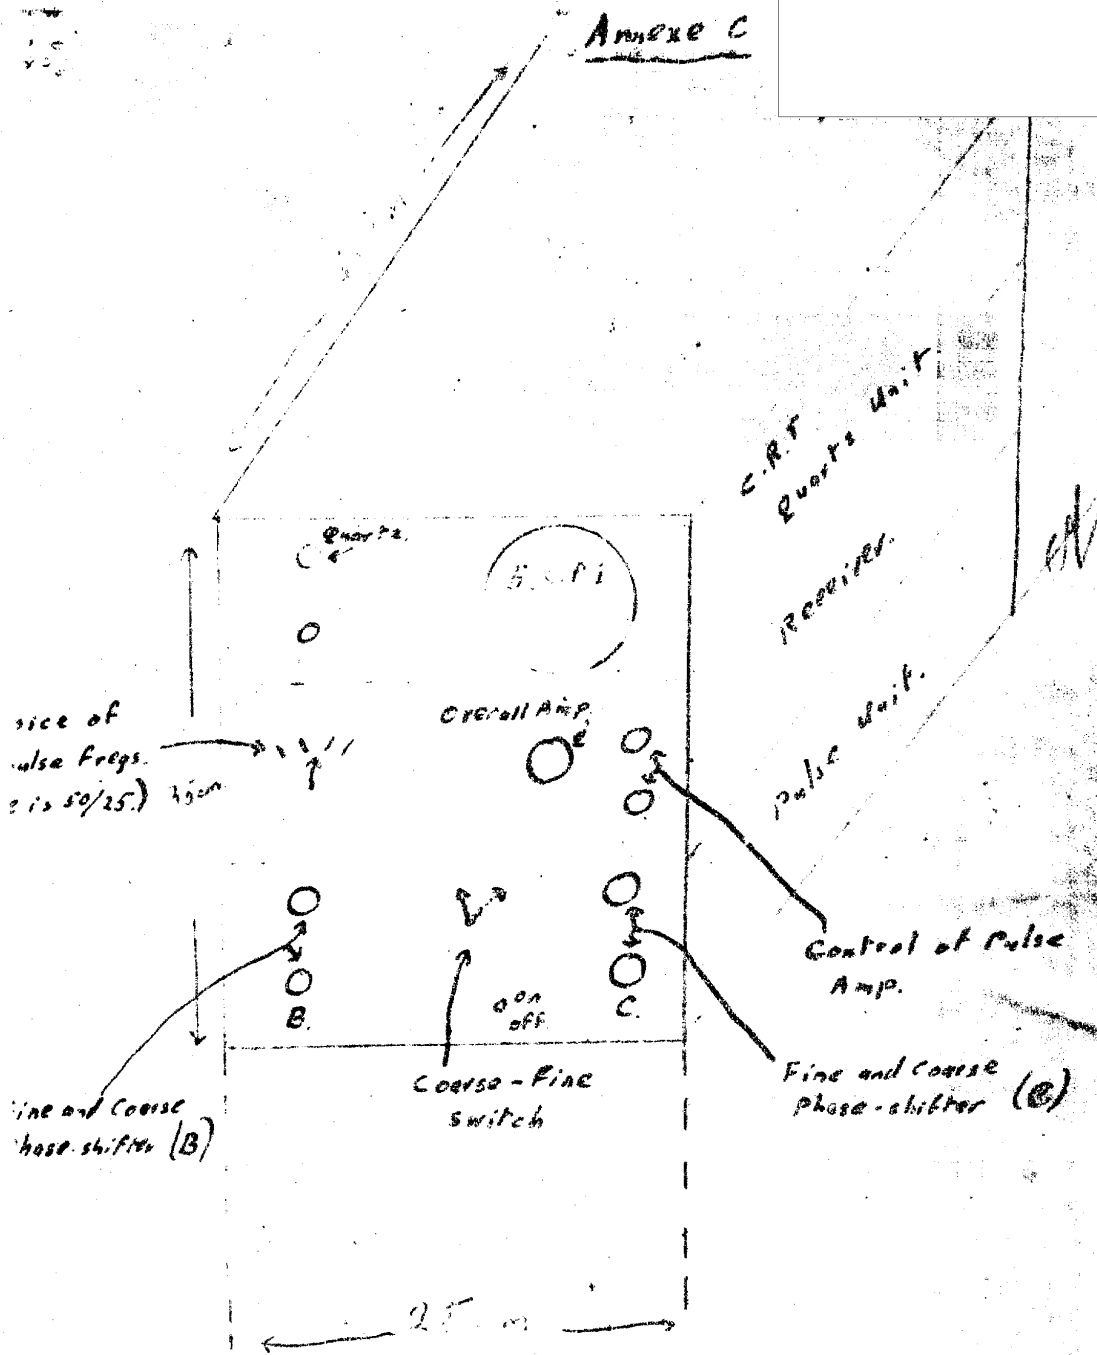 Annexe C
C.R.T
Quartz Unit.
Receiver.
Pulse Unit.
Quartz.
Overall Amp.
ulse Freqs.
is 50/25.)
B.
on
off
C.
Control of Pulse
Amp.
Coarse-Fine
switch
Fine and Coarse
Phase-shifter (C)
ine and Coarse
hase-shifter (B)
25